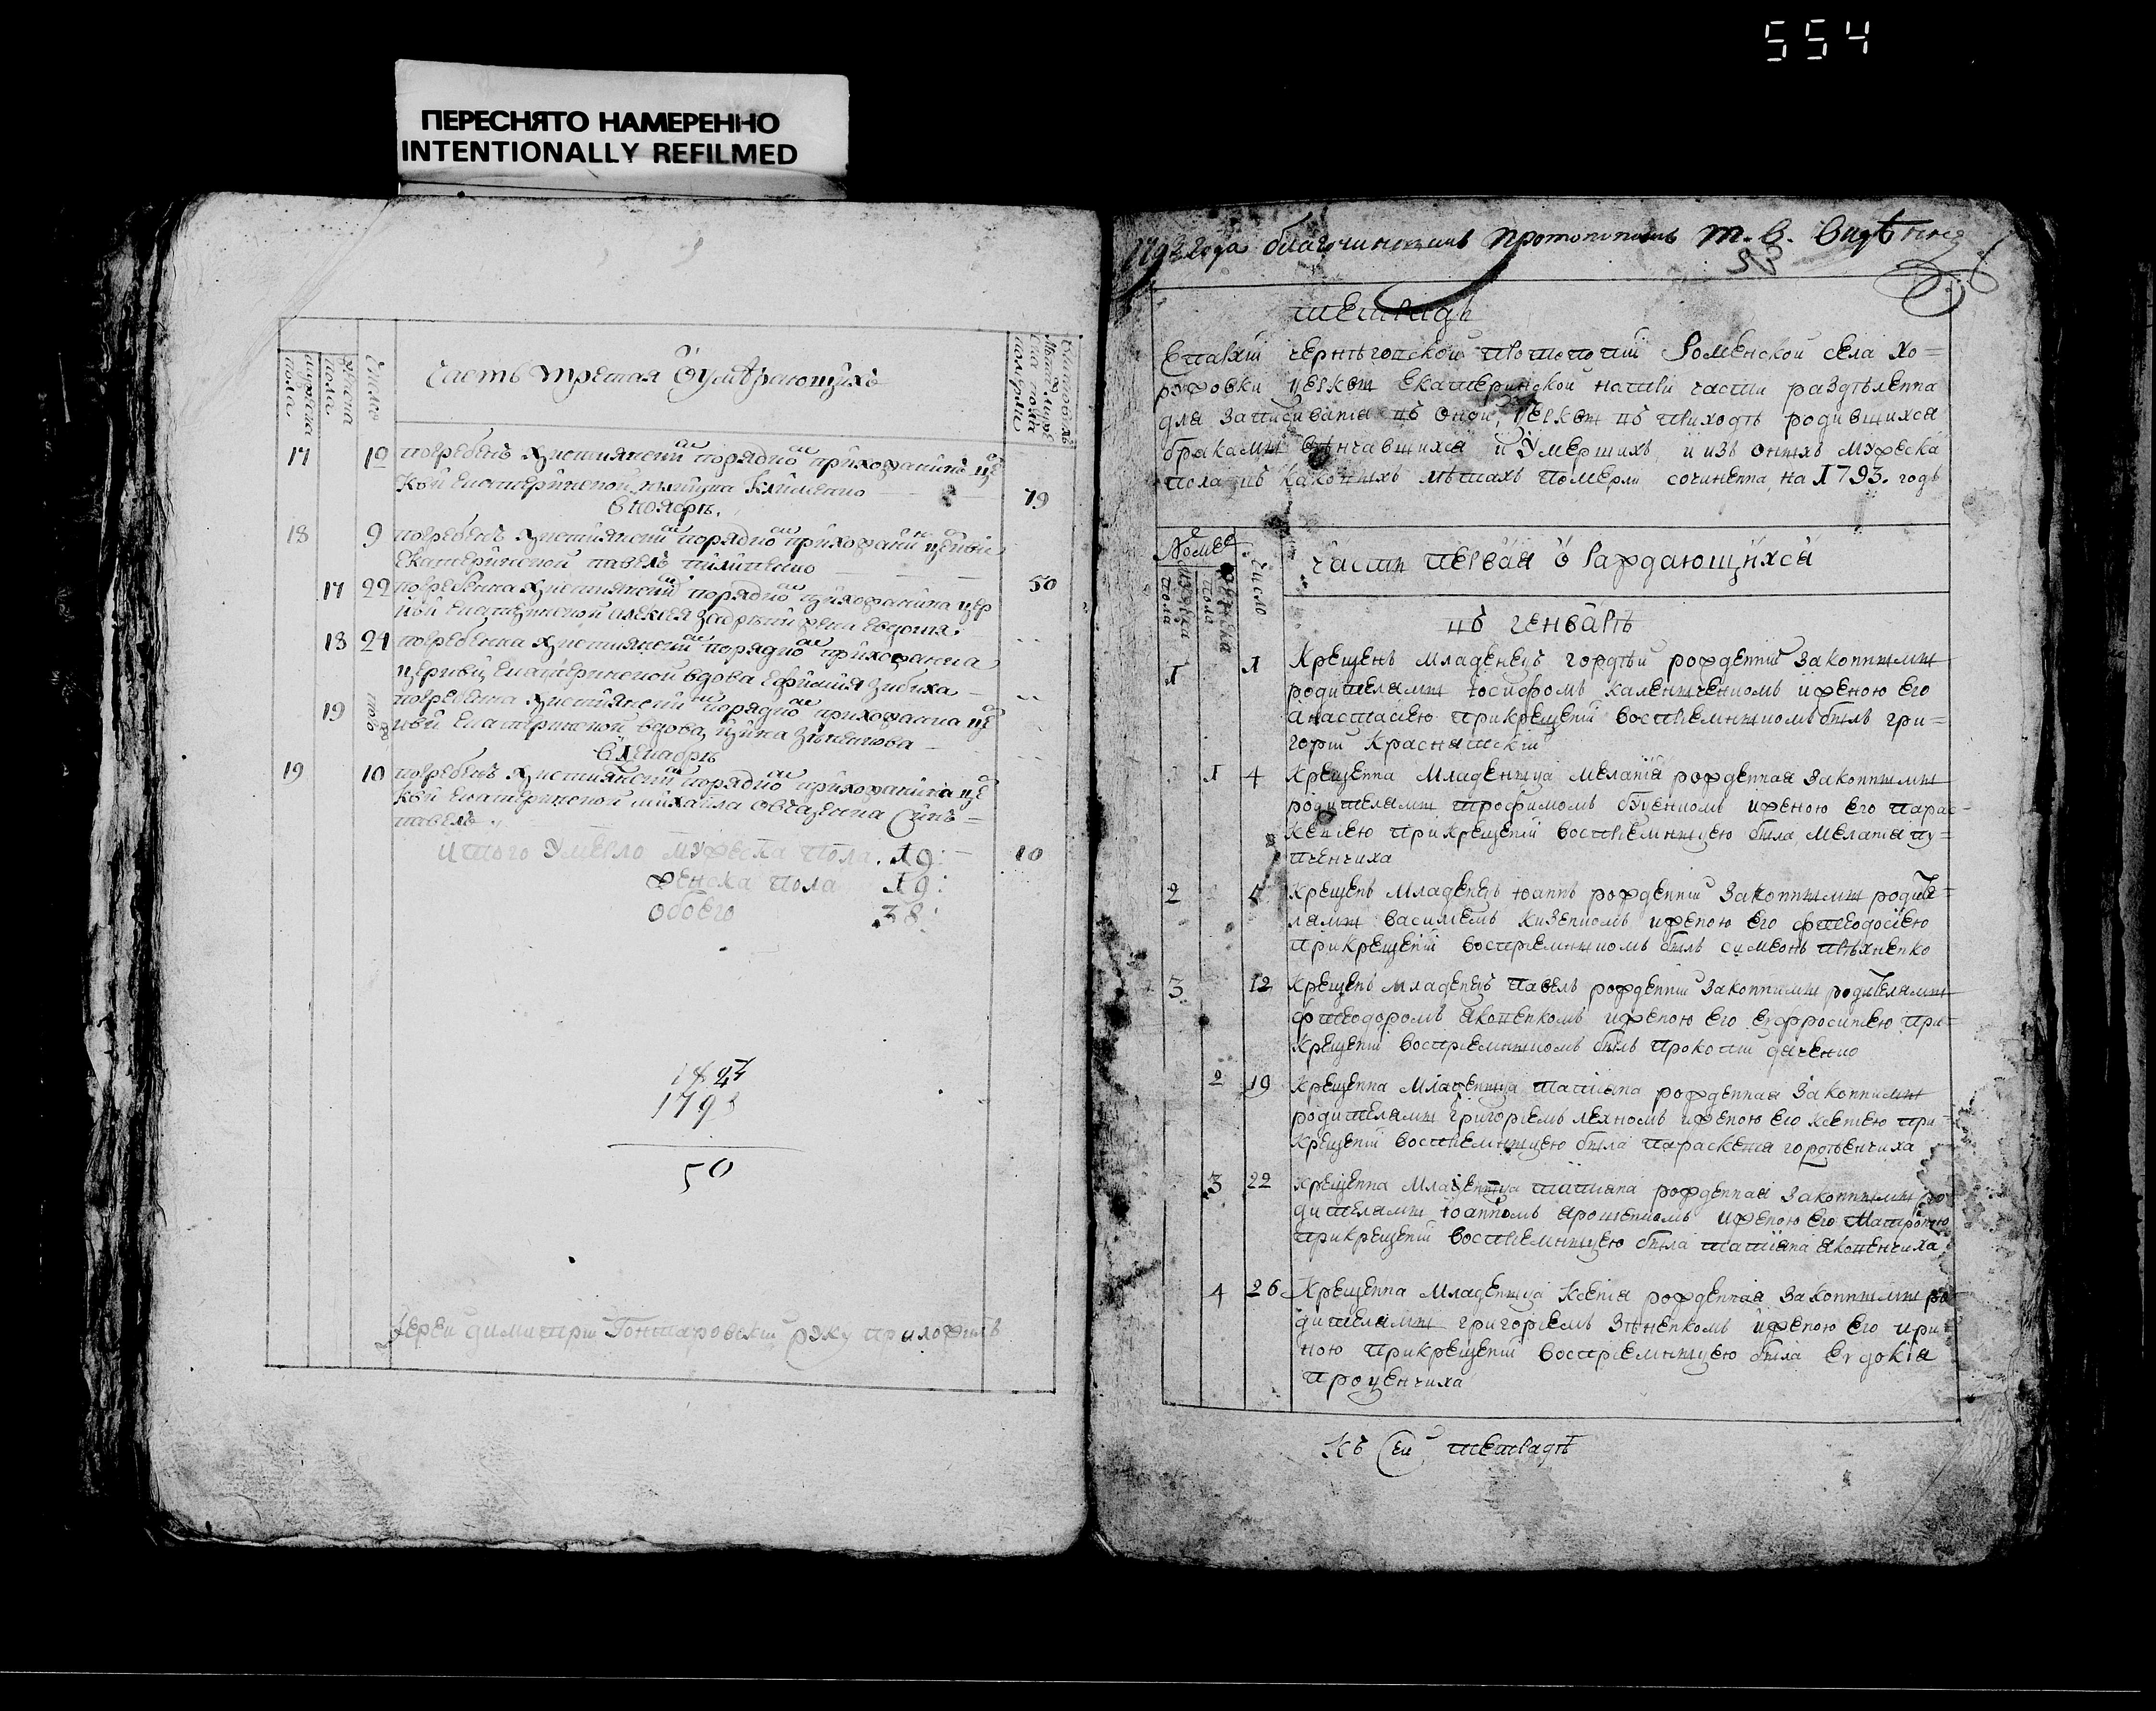 554
ПЕРЕСНЯТО НАМЕРЕННО
INTENTIONALLY REFILMED
мужеска пола
женска пола
Число
Часть третая о умирающихъ
17 10 погребенъ христиански порядно прихожанинъ це
ркви екатеринской Клименко 79
в ноябрѣ.
18 9 погребенъ християнски порядно прихожанинъ церкви
Екатеринской павелъ пилипенко 50
17 22 погребенна християнски порядно прихожанина цер
кви екатеринской алексея жена евдокия
18 24 погребенна християнски порядно прихожанка
церкви екатеринской вдова ефимия
19 погребенна християнски порядно прихожанка це
ркви екатеринской вдова
в декабрѣ
19 10 погребенъ християнски порядно прихожанина це
ркви екатеринской михаила овчаренка сынъ
павелъ 10
итого умерло мужеска пола. 19:
женска пола 19:
обоего 38:
1793
50
Іерей димитрій Гонтаровскій руку приложилъ
года благочинный протопопъ
тетрадь
Епархіи чернѣговской протопопіи Роменской села хо=
ружовки церкви Екатеринской на три части раздѣленна
для записиванія въ оной церкви въ приходѣ родившихся
бракамы вѣнчавшихся и умершихъ, и изъ оныхъ мужеска
пола въ каковыхъ лѣтахъ померли сочиненна, на 1793. годъ
мужеска пола
женска пола
Число
части первая о раждающихся
въ генварѣ
1 1 Крещенъ младенецъ гордѣй рожденній законнымы
родителямы іосифомъ каленыченкомъ иженою его
анастасіею прикрещеніи воспріемныкомъ былъ гри=
горій Краснянскій
1 4 Крещенна младеныца меланія рожденная законнымы
родителямы трофимомъ буенкомъ иженою его парас=
кевіею прикрещеніи воспріемныцею была меланія пу=
пченчиха
2 5 Крещенъ младенецъ іоаннъ рожденній законнымы родите=
лямы василіемъ кизенкомъ иженою его фтеодосіею
прикрещеніи воспріемныкомъ былъ симеонъ
3 12 Крещенъ младенецъ павелъ рожденній законнимы родителямы
фтеодоромъ яковенкомъ иженою его евфросиніею при=
крещеніи воспріемныкомъ былъ прокопій даченко
2 19 Крещенна младеныца татіяна рожденная законнимы
родителямы григоріемъ лехномъ иженою его ксеніею при=
крещеніи воспріемныцею была параскевія гордѣенчиха
3 22 крещенна младеныца татіяна рожденная законнымы ро
дителямы іоанномъ ярошенкомъ иженою его матроною
прикрещеніи воспріемныцею была татіяна яковенчиха
4 26 Крещенна младеныца ксенія рожденная законнымы ро
дителямы григоріемъ зѣненкомъ иженою его ири=
ною прикрещеніи воспріемныцею была евдокія
проценчиха
Къ сей тетрадѣ